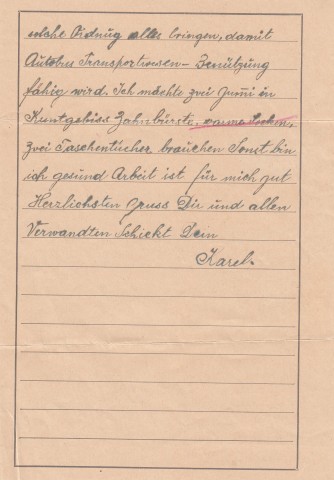 solche Ordnug alles bringen, damit
Autobus Transportwesen - Benützung
fähig wird. Ich möchte zwei Jumi in
Kunstgebiss Zahnbürste, warme Socken,
zwei Taschentücher brauchen Sonst bin
ich gesund Arbeit ist für mich gut
Herzlichsten Gruss Dir und allen
Verwandten Schickt Dein
Karel.